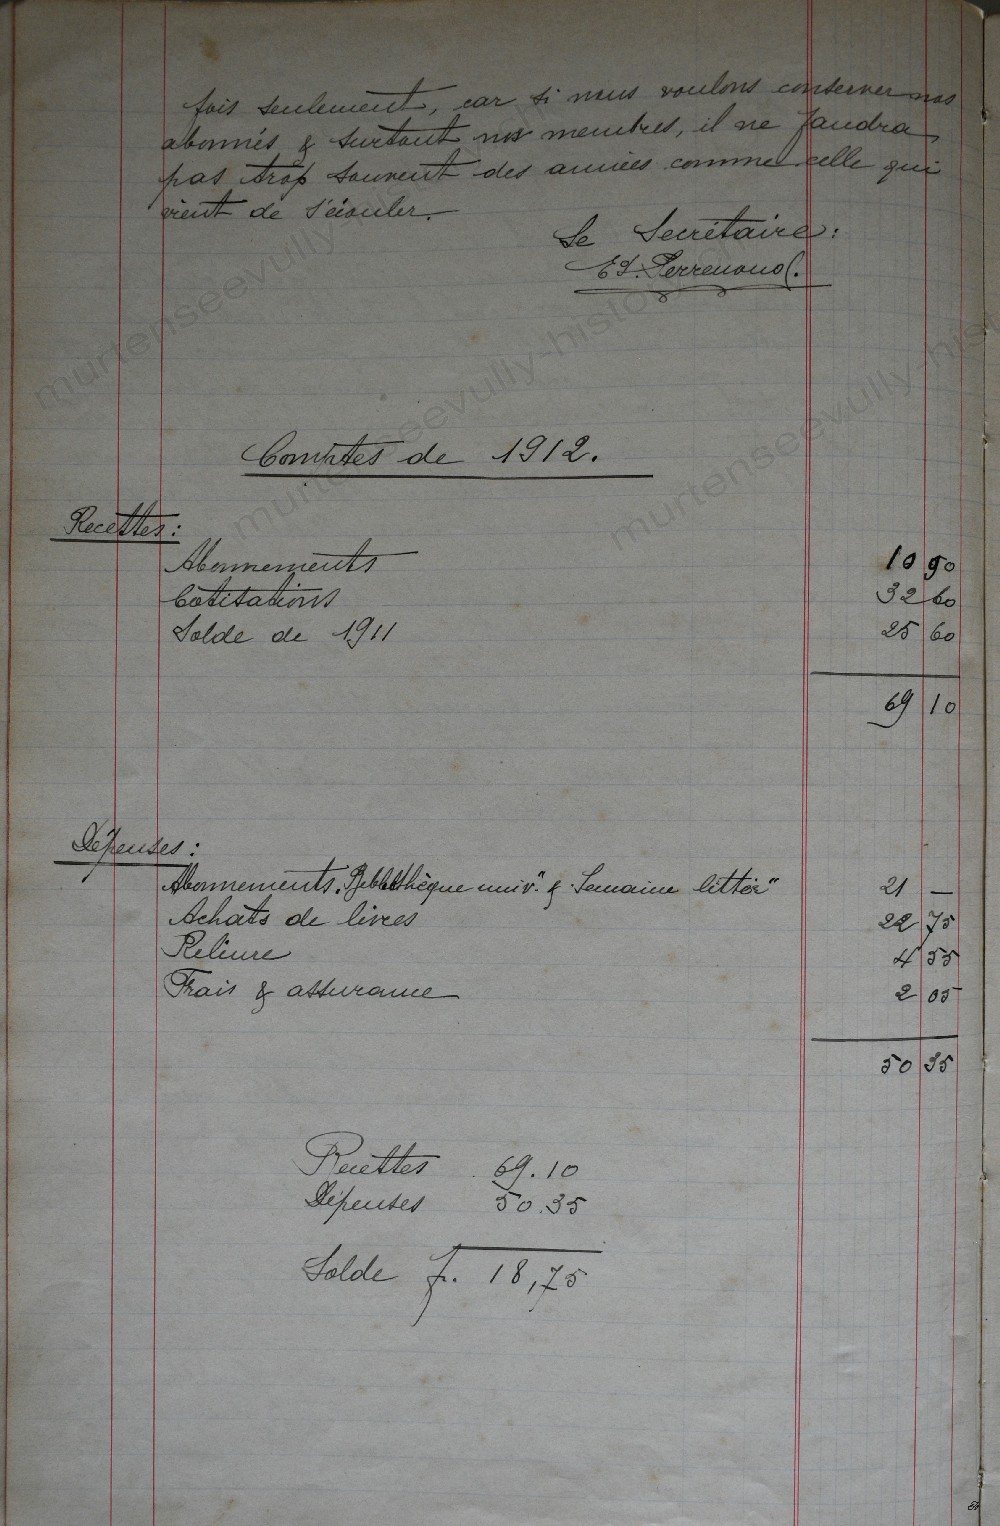 fois seulement, car si nous voulons conserver nos
abonnés & surtout nos membres, il ne faudra
pas trop souvent des années comme celle qui
vient de s'écouler.
Le Secrétaire:
Ed. Perrenoud.
Comptes de 1912.
Recettes:
Abonnements 10 90
Cotisations 32 60
Solde de 1911 25 60
69 10
Dépenses:
Abonnements. Bibliothèque univ" & Semaine littér" 21 —
Achats de livres 22 75
Reliure 4 55
Frais & assurance 2 05
50 35
Recettes 69.10
Dépenses 50.35
Solde fr. 18,75